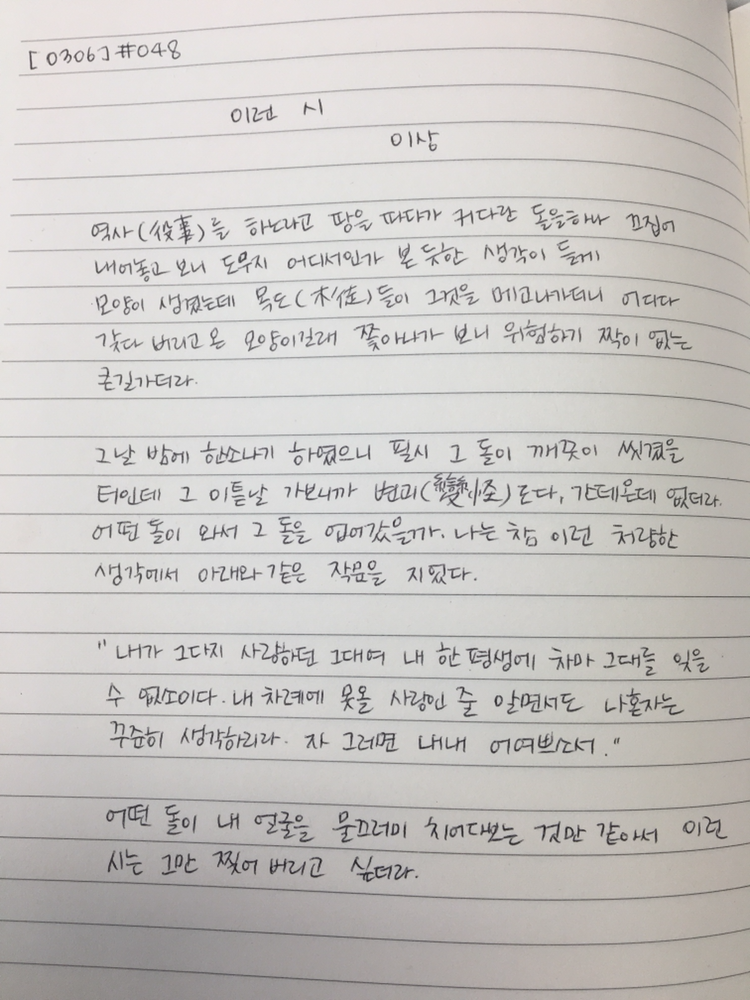 [0306] #048
이런 시
이상
역사(役事)를 하노라고 땅을 따다가 커다란 돌을하나 끄집어
내어놓고 보니 도무지 어디서인가 본 듯한 생각이 들게
모양이 생겼는데 목도(木徒)들이 그것을 메고나가더니 어디다
갖다 버리고온 모양이길래 쫓아나가 보니 위험하기 짝이 없는
큰길가더라.
그날 밤에 한소나기 하였으니 필시 그 돌이 깨끗이 씻겼을
터인데 그 이튿날 가보니까 변괴(變怪)로다, 간데온데 없더라.
어떤 돌이 와서 그 돌을 업어갔을까. 나는 참 이런 처량한
생각에서 아래와 같은 작문을 지었다.
"내가 그다지 사랑하던 그대여 내 한 평생에 차마 그대를 잊을
수 없소이다. 내 차례에 못올 사랑인 줄 알면서도 나혼자는
꾸준히 생각하리라. 자 그러면 내내 어여쁘소서."
어떤 돌이 내 얼굴을 물끄러미 치어다보는 것만 같아서 이런
시는 그만 찢어 버리고 싶더라.